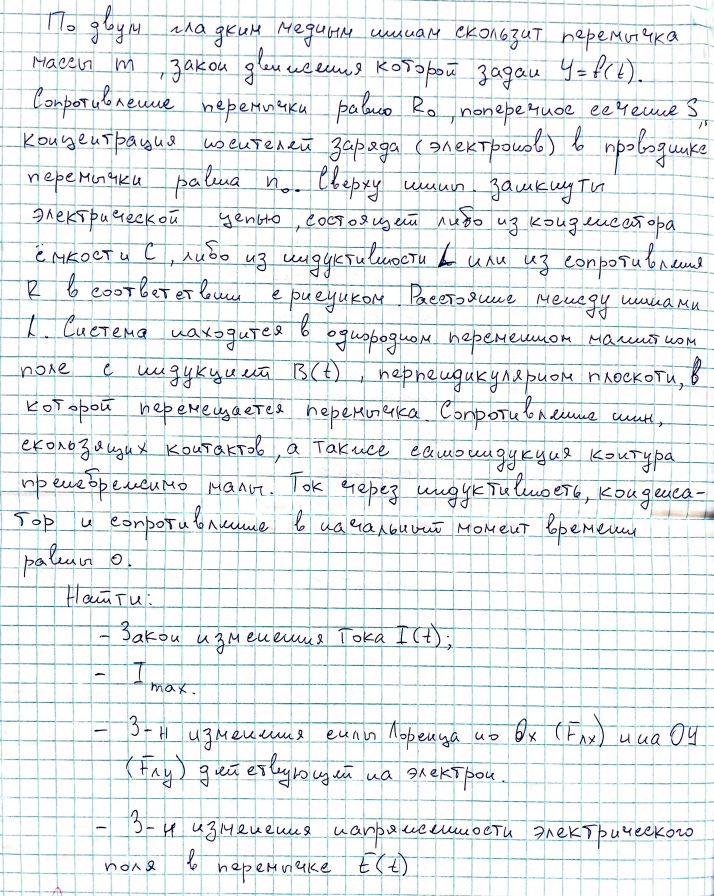 По двум гладким медным шинам скользит перемычка
массы m, закон движения которой задан y=f(t).
Сопротивление перемычки равно R₀, поперечное сечение S,
концентрация носителей заряда (электронов) в проводнике
перемычки равна n₀. Сверху шины замкнуты
электрической цепью, состоящей либо из конденсатора
ёмкости C, либо из индуктивности L или из сопротивления
R в соответствии с рисунком. Расстояние между шинами
l. Система находится в однородном переменном магнитном
поле с индукцией B(t), перпендикулярном плоскоти, в
которой перемещается перемычка. Сопротивление шин,
скользящих контактов, а также самоиндукция контура
пренебрежимо малы. Ток через индуктивность, конденса-
тор и сопротивление в начальный момент времени
равны 0.
Найти:
- Закон изменения тока I(t);
- I max.
- З-н изменения силы Лоренца по Ох (Fлх) и на ОУ
(Fлу) действующей на электрон.
- З-н изменения напряженности электрического
поля в перемычке E(t)